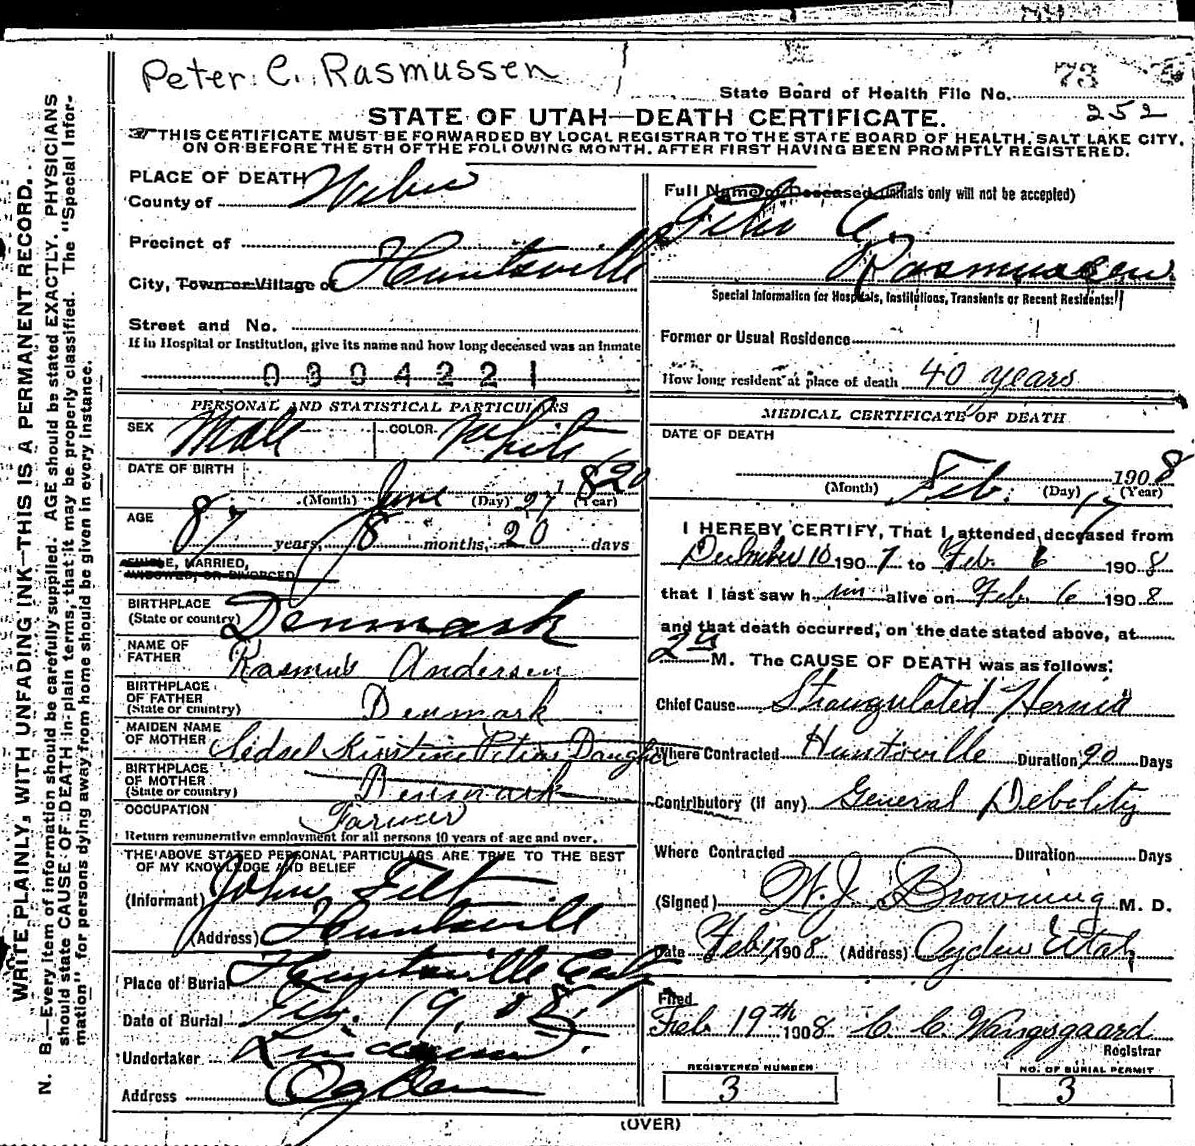 Peter C. Rasmussen
State Board of Health File No. 73
252
STATE OF UTAH—DEATH CERTIFICATE.
THIS CERTIFICATE MUST BE FORWARDED BY LOCAL REGISTRAR TO THE STATE BOARD OF HEALTH, SALT LAKE CITY,
ON OR BEFORE THE 5TH OF THE FOLLOWING MONTH. AFTER FIRST HAVING BEEN PROMPTLY REGISTERED.
PLACE OF DEATH
County of Weber
Precinct of
City, Town or Village of Huntsville
Street and No.
If in Hospital or Institution, give its name and how long deceased was an inmate
0 3 0 4 2 2 1
PERSONAL AND STATISTICAL PARTICULARS
SEX Male COLOR White
DATE OF BIRTH
June 27 1820
(Month) (Day) (Year)
AGE
87 years, 8 months, 20 days
SINGLE, MARRIED,
WIDOWED, OR DIVORCED
BIRTHPLACE
(State or country) Denmark
NAME OF
FATHER Rasmus Andersen
BIRTHPLACE
OF FATHER
(State or country) Denmark
MAIDEN NAME
OF MOTHER Sidsel Kirstine Peters Daughter
BIRTHPLACE
OF MOTHER
(State or country) Denmark
OCCUPATION Farmer
Return remunerative employment for all persons 10 years of age and over.
THE ABOVE STATED PERSONAL PARTICULARS ARE TRUE TO THE BEST
OF MY KNOWLEDGE AND BELIEF
(Informant) John Felt
(Address) Huntsville
Place of Burial Huntsville
Date of Burial Feb. 19, 08
Undertaker
Address Ogden
Full Name of Deceased (initials only will not be accepted)
Peter C.
Rasmussen
Special Information for Hospitals, Institutions, Transients or Recent Residents:
Former or Usual Residence
How long resident at place of death 40 years
MEDICAL CERTIFICATE OF DEATH
DATE OF DEATH
Feb. 17 1908
(Month) (Day) (Year)
I HEREBY CERTIFY, That I attended deceased from
December 10 1907 to Feb. 6 1908
that I last saw him alive on Feb. 6 1908
and that death occurred, on the date stated above, at
2 M. The CAUSE OF DEATH was as follows:
Chief Cause Strangulated Hernia
Where Contracted Huntsville Duration 90 Days
Contributory (if any) General Debility
Where Contracted Duration Days
(Signed) W. J. Browning M. D.
Date Feb 17, 1908 (Address) Ogden Utah
Filed
Feb. 19th 1908 C. C. Wangsgaard
Registrar
REGISTERED NUMBER
3
NO. OF BURIAL PERMIT
3
(OVER)
WRITE PLAINLY, WITH UNFADING INK—THIS IS A PERMANENT RECORD.
N. B.—Every item of information should be carefully supplied. AGE should be stated EXACTLY. PHYSICIANS
should state CAUSE OF DEATH in plain terms, that it may be properly classified. The "Special Infor-
mation" for persons dying away from home should be given in every instance.